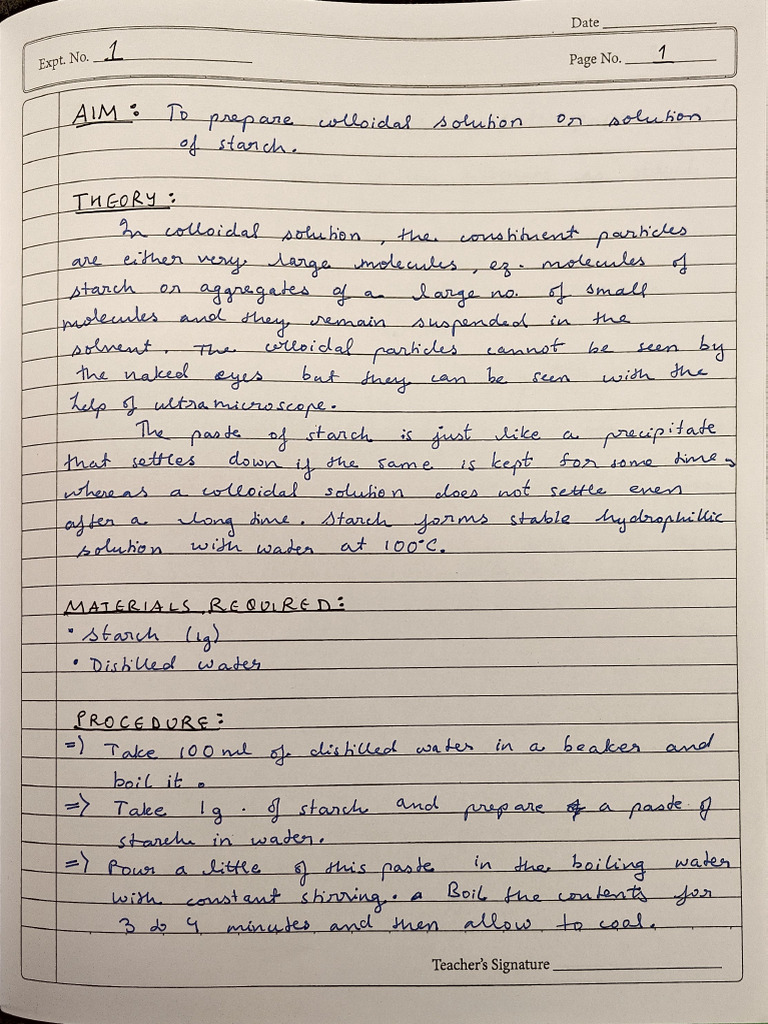 Date
Expt. No. 1
Page No. 1
AIM : To prepare colloidal solution or solution
of starch.
THEORY :
In colloidal solution, the constituent particles
are either very large molecules, eg. molecules of
starch or aggregates of a large no. of small
molecules and they remain suspended in the
solvent. The colloidal particles cannot be seen by
the naked eyes but they can be seen with the
help of ultramicroscope.
The paste of starch is just like a precipitate
that settles down if the same is kept for some time,
whereas a colloidal solution does not settle even
after a long time. Starch forms stable hydrophillic
solution with water at 100°C.
MATERIALS REQUIRED :
• Starch (1g)
• Distilled water
PROCEDURE :
=> Take 100 ml of distilled water in a beaker and
boil it.
=> Take 1g. of starch and prepare a paste of
starch in water.
=> Pour a little of this paste in the boiling water
with constant stirring. Boil the contents for
3 to 4 minutes and then allow to cool.
Teacher's Signature